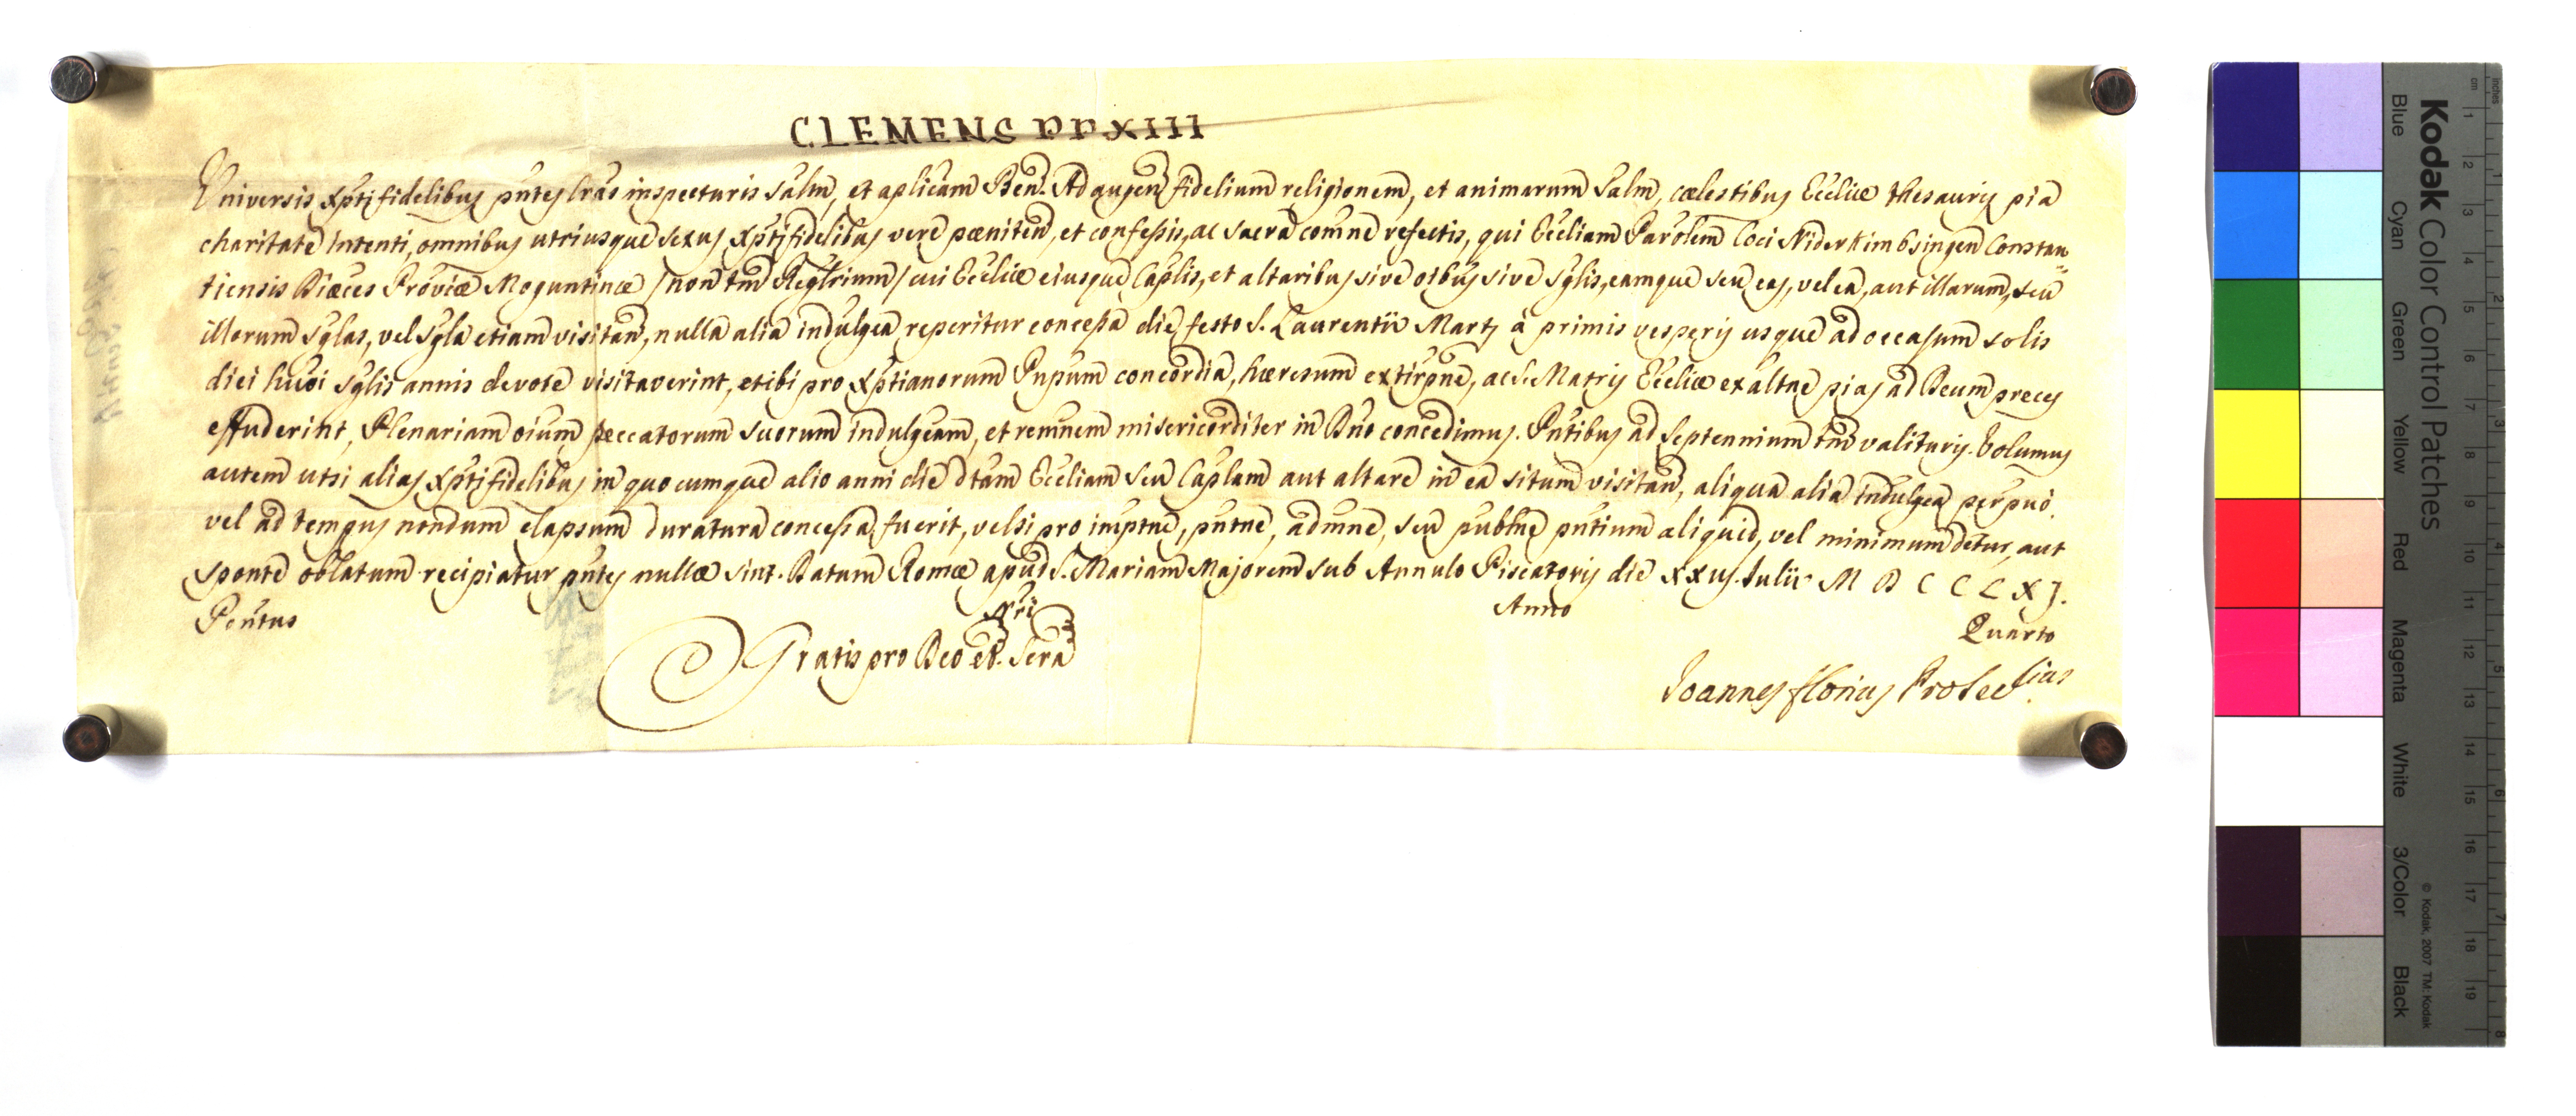 CLEMENS PP XIII
Universis Xpti fidelibus pntes lras inspecturis Salm, et aplicam Ben. Ad augen fidelium religionem, et animarum Salm, cœlestibus Eccliæ thesauris pia
charitate intenti, omnibus utriusque sexus Xpti fidelibus vere pœniten, et confessis, ac sacra comne refectis, qui Eccliam Parolem loci Niderkimbsingen Constan
tiensis Diœces Proviæ Moguntinæ /non tm Reglrium/ cui Eccliæ eiusque Caplis, et altaribus sive oibus sive sglis, eamque seu eas, vel ea, aut illarum, seu
illorum sglas, vel sgla etiam visitan, nulla alia indulgea reperitur concessa die festo S. Laurentii Marts a primis vesperis usque ad occasum solis
diei huoi sglis annis devote visitaverint, et ibi pro Xptianorum Pnpum concordia, hæresum extirpne, ac S. Matris Eccliæ exaltne pias ad Deum preces
effuderint, Plenariam oium peccatorum suorum indulgeam, et remnem misericorditer in Dno concedimus. Pntibus ad Septennium tm valituris. Volumus
autem ut si alias Xpti fidelibus in quocumque alio anni die dtam Eccliam seu Caplam aut altare in ea situm visitan, aliqua alia indulgea perpuo
vel ad tempus nondum elapsum duratura concessa fuerit, vel si pro imptne, pntne, admne, seu publne pntium aliquid, vel minimum detur, aut
sponte oblatum recipiatur pntes nullæ sint. Datum Romæ apud S. Mariam Majorem sub Annulo Piscatoris die XXVS. Julii M D C C L X J.
Pontus Nri Anno Quarto
Gratis pro Deo et Scra
Joannes Florius Prosec lius
Kodak Color Control Patches
Blue Cyan Green Yellow Red Magenta White 3/Color Black
© Kodak, 2007 TM: Kodak
cm 1 2 3 4 5 6 7 8 9 10 11 12 13 14 15 16 17 18 19
Inches 1 2 3 4 5 6 7 8